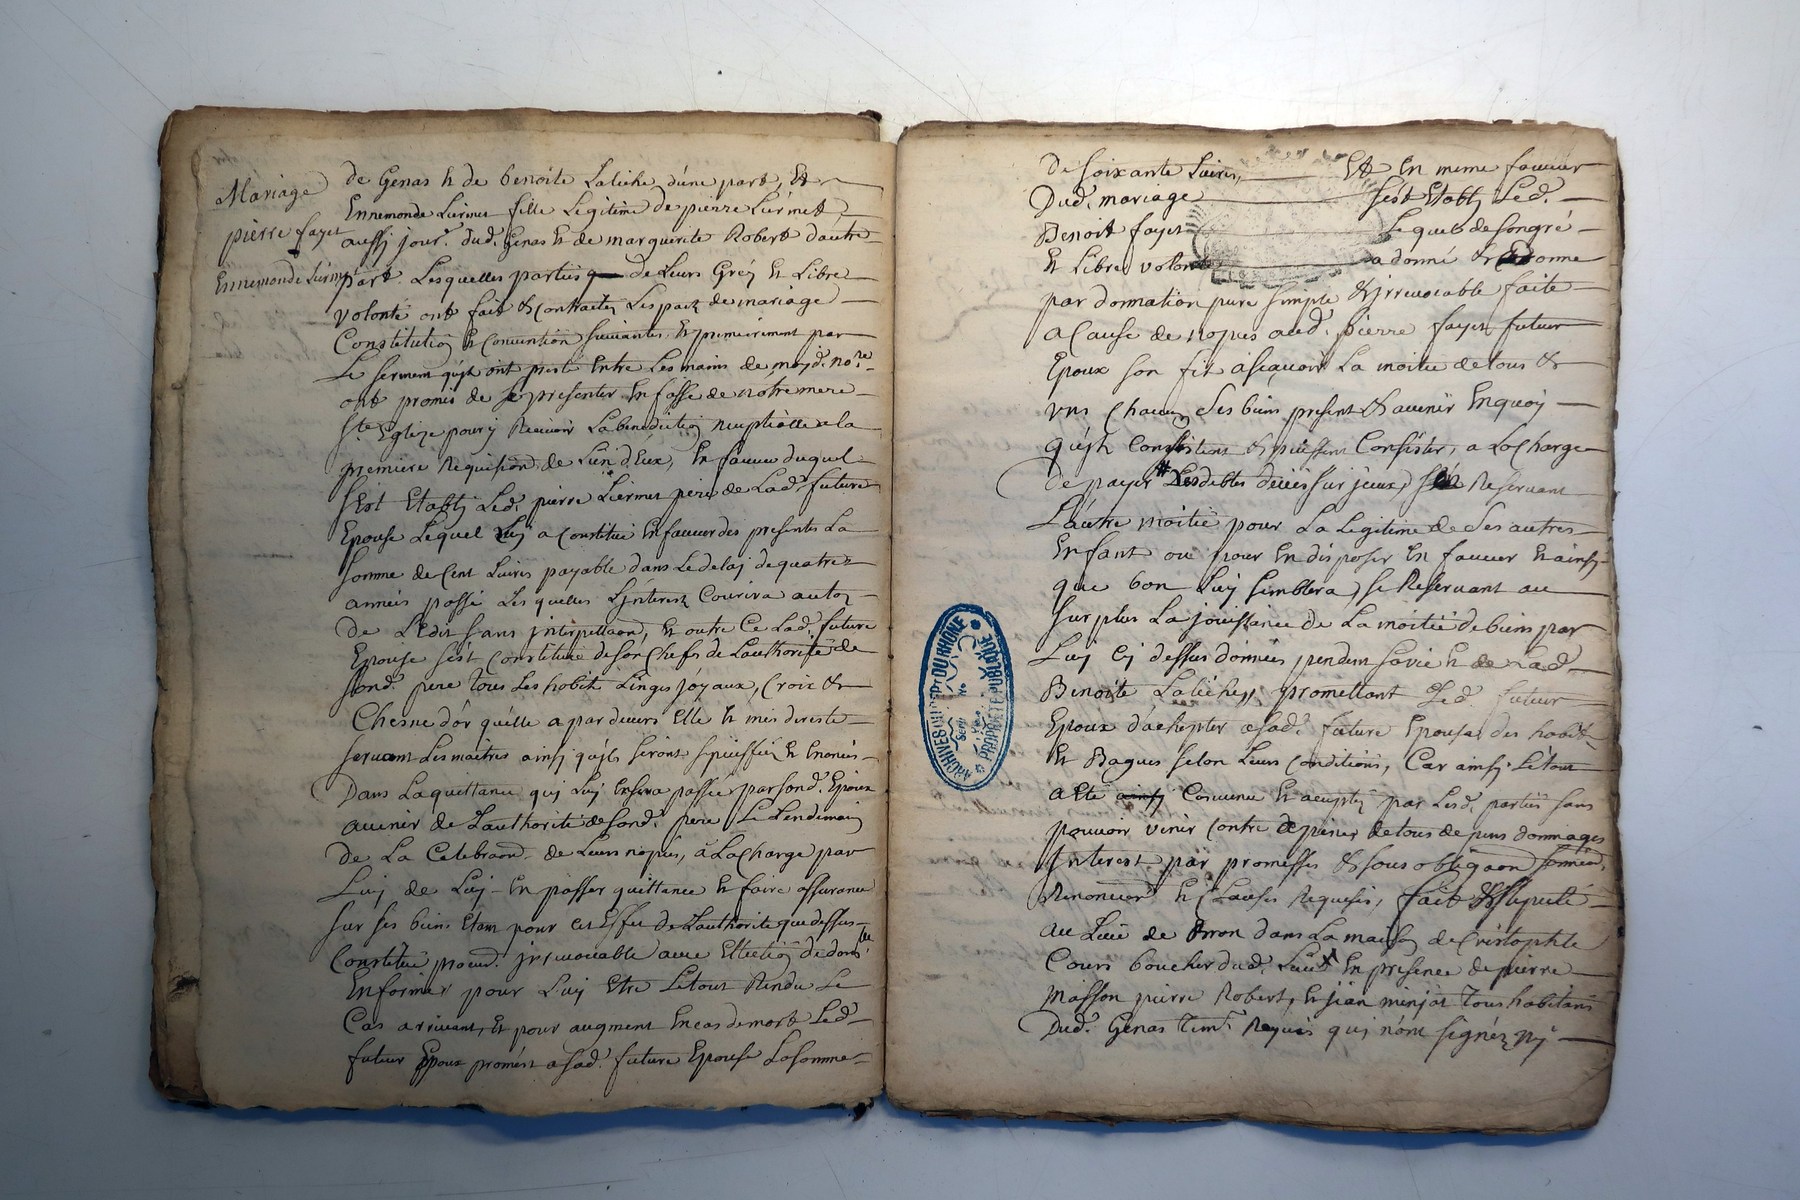 Mariage
pierre fayet
Ennemonde Liermet
de Genas & de benoite Laliche d'une part, Et
Ennemonde Liermet fille Legitime de pierre Liermet
aussy jour.r dud. Genas & de marguerite Robert d'autre
part. Lesquelles parties de Leurs Gréz & Libre
volonté ont fait & contractez Les pack de mariage
Constitution & convention suivantes. & premierement par
Le serment qu'ils ont presté Entre Les mains de moyd. no.re
ont promis de se presenter En fasse de nôtre mere
S.te Eglize pour y Recevoir La benediction nuptialle a la
premiere Requisition de L'un d'Eux, En faveur duquel
s'est Etably Led. pierre Liermet pere de Lad. future
Epouse Lequel Luy a constitué En faveur des presentes La
somme de Cent Livres payable dans Le delay de quatre
années passé Les quelles L'jnterest Courira au toz
de L'Edit sans jnterpellaon, & outre Ce Lad. future
Epouse s'est constituée de son Chef & de L'authorité de
sond. pere tous Les habits Linges joyaux, Croix &
Chesne d'or qu'elle a par devers Elle & mis de reste
servant Les maitres ainsy qu'ils seront spécifiéz & Enoncés
Dans La quittance quj Luy En sera passée par sond. Epoux
avenir de L'authorité de sond. pere Le Lendemain
de La Celebraon de Leurs nopces, à La charge par
Luy de Luy En passer quittance & faire assurance
sur ses biens Etant pour cet Effet de L'authorité que dessus
Constitué procur. jrrevocable avec Ellection de dom.lle
En former pour Luy Etre Le tout Rendu Le
Cas arrivant, & pour augment En cas de mort Led.
futur Epoux promest a sad. future Epouse La somme
De soixante Livres, Et En meme faveur
Dud. mariage s'est Etably Led.
Benoit fayet Le quel de son gré
& Libre volonté a donné & donne
par donnation pure simple & jrrevocable faite
a Cause de nopces aud. pierre fayet futur
Epoux son fix àsçavoir La moitié de tous &
vns chacun Ses biens present & avenir En quoy
qu'ils consistent & puissent Consister, a La charge
de payer Les debtes deües sur jceux, se Reservant
L'autre moitié pour La Legitime de Ses autres
Enfant ou pour En disposer En faveur & ainsy
que bon Luy semblera, se Reservant au
surplus La joüissance de La moitié de biens par
Luy cy dessus donnée pendant sa vie & de Lad.
Benoite Laliche, promettant Led. futur
Epoux d'achepter a sad. future Epouse des habits
& Bagues selon Leurs Conditions, Car ainsy Le tout
a Eté ainsy Convenu & accepté par Lesd. parties sans
pouvoir venir contre de tous depens dommages
Interest par promesses & sous obligaon
Renoncer & Clauses Requeses, fait & stipulé
au Lieu de Bron dans La maison de Cristophle
Cours boucher dud. Lieu En presence de pierre
Masson pierre Robert, & jean minjat tous habitans
Dud. Genas tem. Requis quj n'ont signéz ny
ARCHIVES DU DEPT DU RHÔNE
PROPRIÉTÉ PUBLIQUE